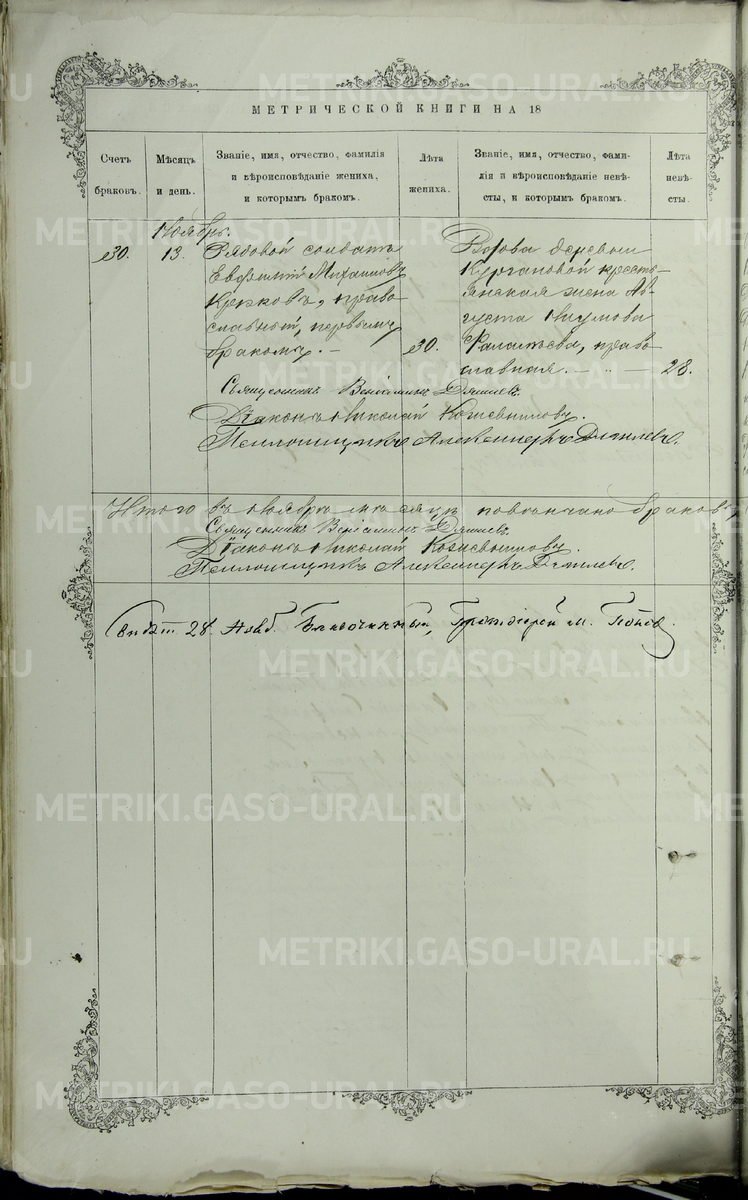 METRIKI.GASO-URAL.RU
МЕТРИЧЕСКОЙ КНИГИ НА 18
Счетъ браковъ.
Мѣсяцъ и день.
Званіе, имя, отчество, фамилія
и вѣроисповѣданіе жениха,
и которымъ бракомъ.
Лѣта жениха.
Званіе, имя, отчество, фами-
лія и вѣроисповѣданіе невѣ-
сты, и которымъ бракомъ.
Лѣта невѣ-
сты.
Ноябрь.
30. 13. Рядовой солдатъ
Евфимій Михаиловъ
православный, первымъ
бракомъ. —
30.
Вдова деревни
Кургановой кресть-
янская жена Ав-
густа Наумова
право-
славная. — 28.
Священникъ Веніаминъ
Діаконъ Николай Кожевниковъ.
Псаломщикъ Александръ
Итого въ Ноябрѣ мѣсяцѣ повѣнчано браковъ
Священникъ Веніаминъ
Діаконъ Николай Кожевниковъ.
Псаломщикъ Александръ
28. Благочинный, Протоіерей М. Поповъ